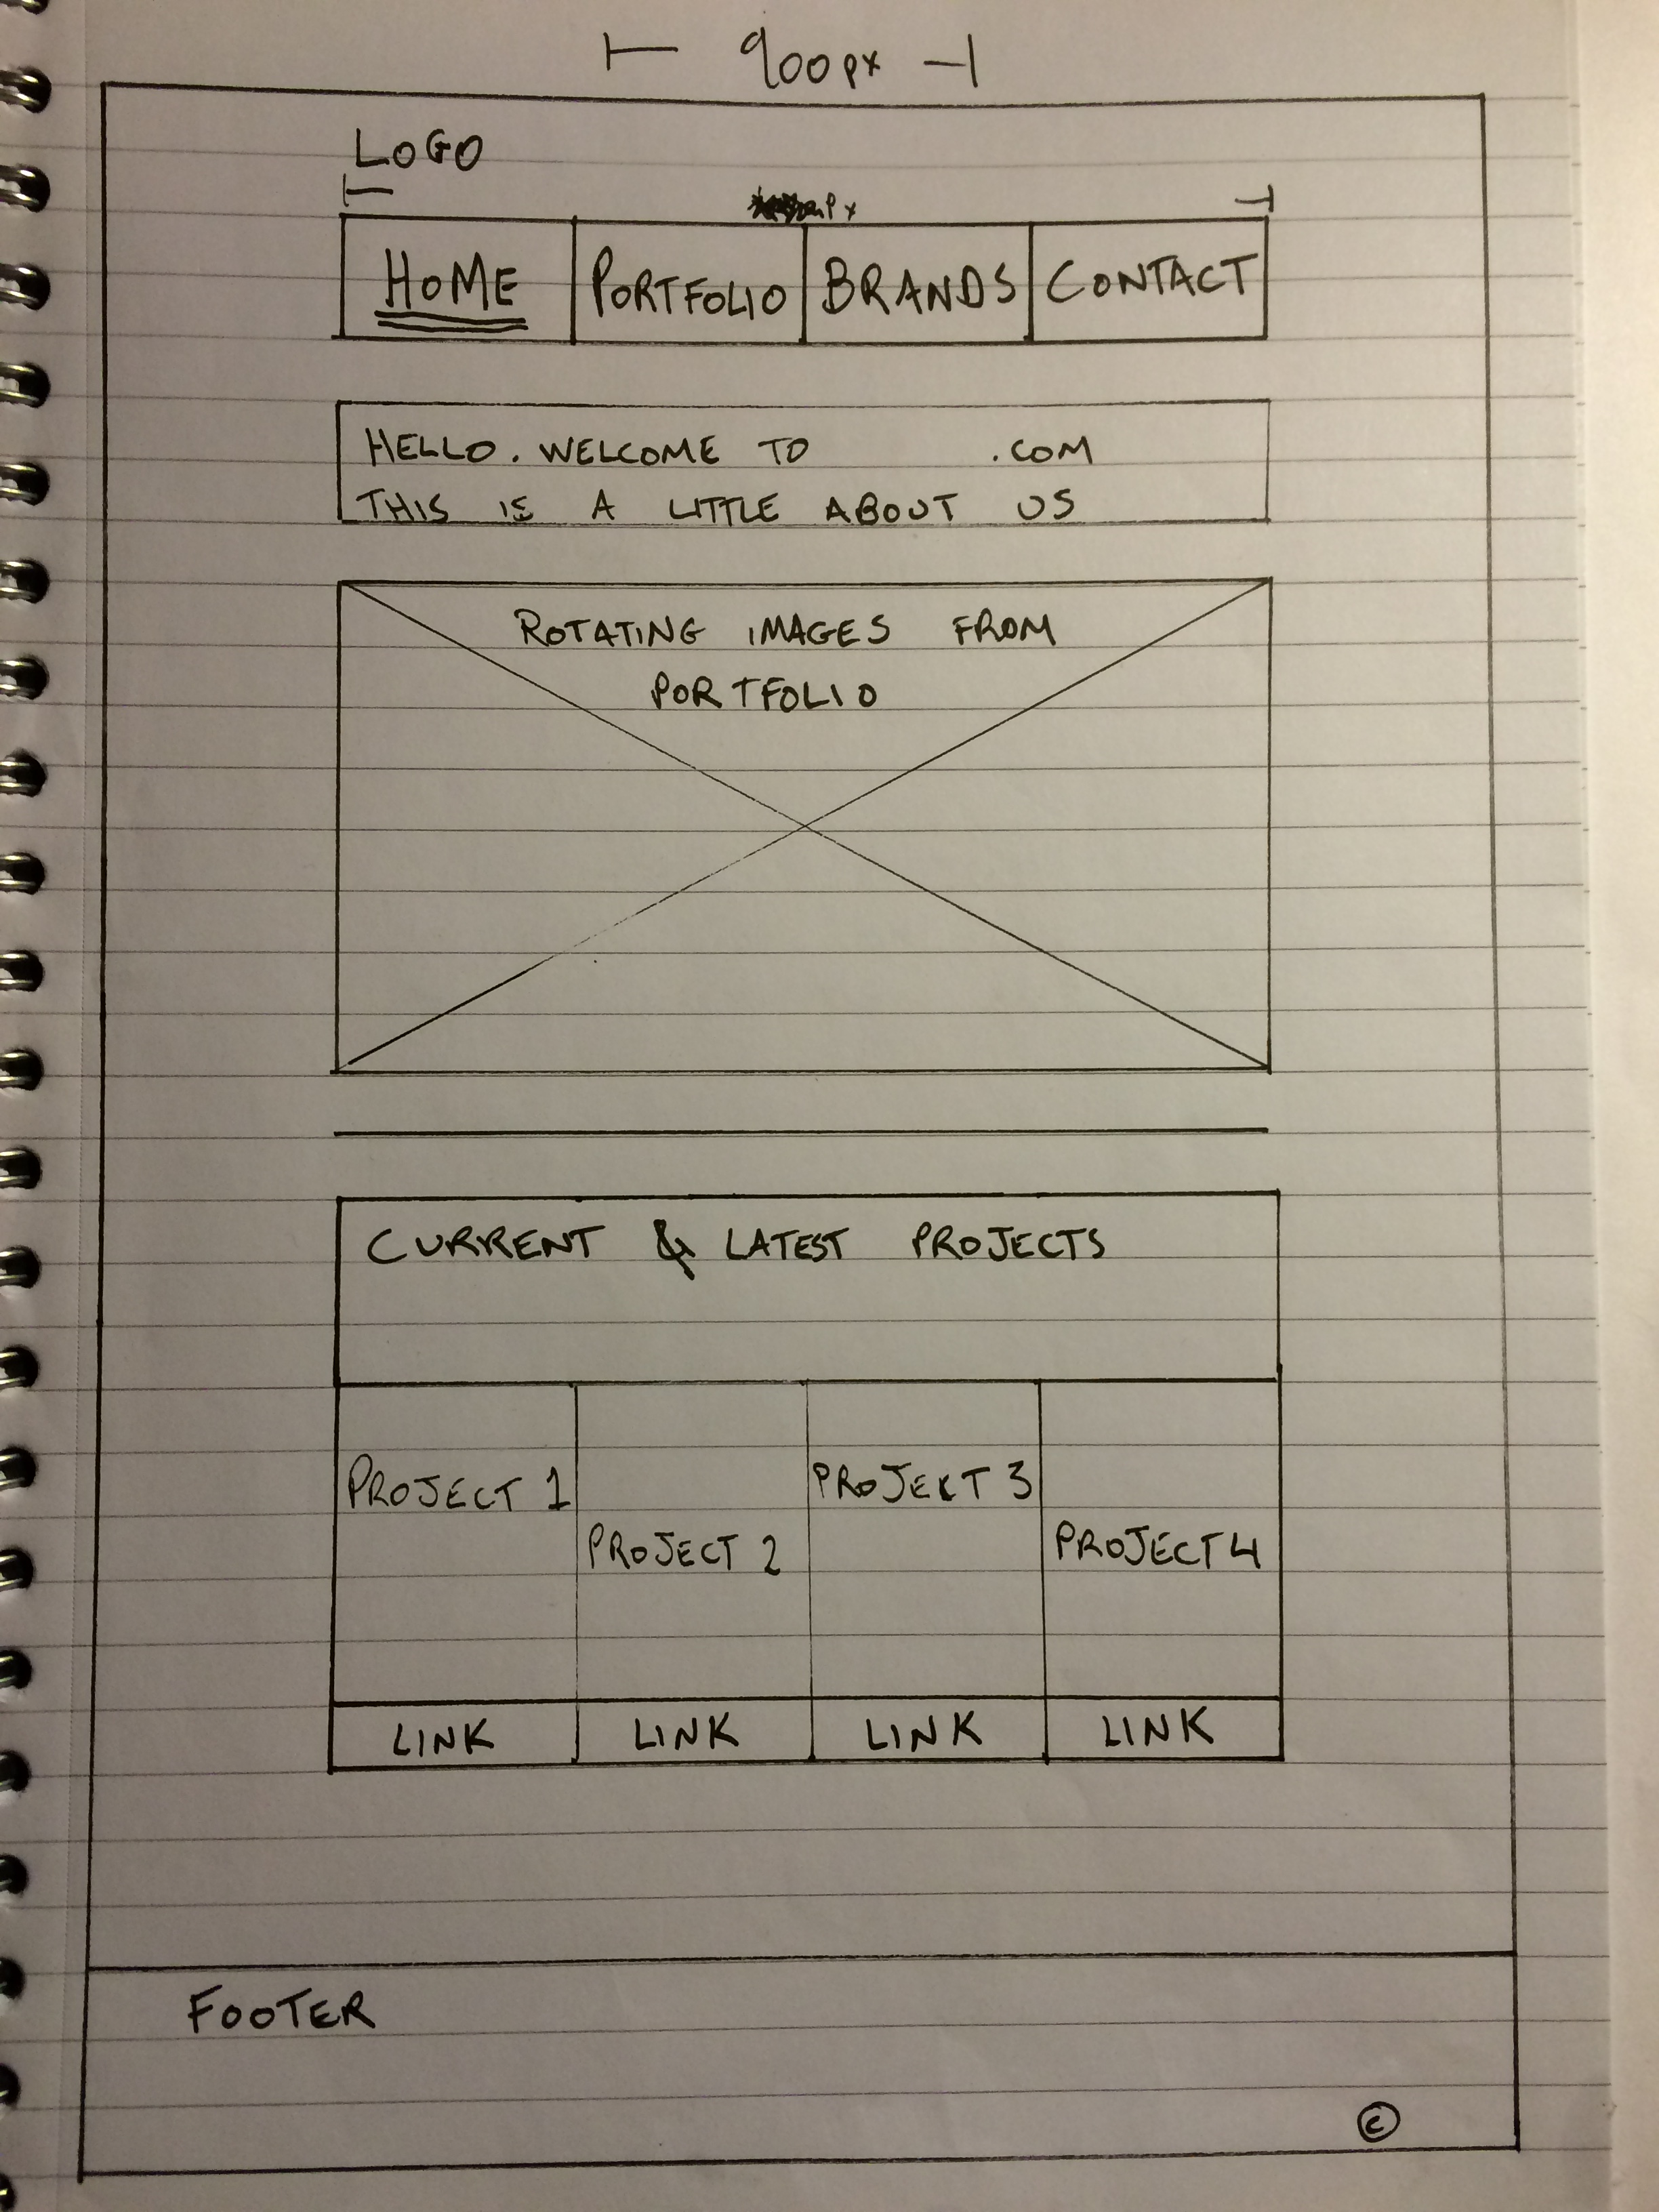 900px
LOGO
Px
HOME PORTFOLIO BRANDS CONTACT
HELLO. WELCOME TO .COM
THIS IS A LITTLE ABOUT US
ROTATING IMAGES FROM
PORTFOLIO
CURRENT & LATEST PROJECTS
PROJECT 1 PROJEKT 3
PROJECT 2 PROJECT 4
LINK LINK LINK LINK
FOOTER
©